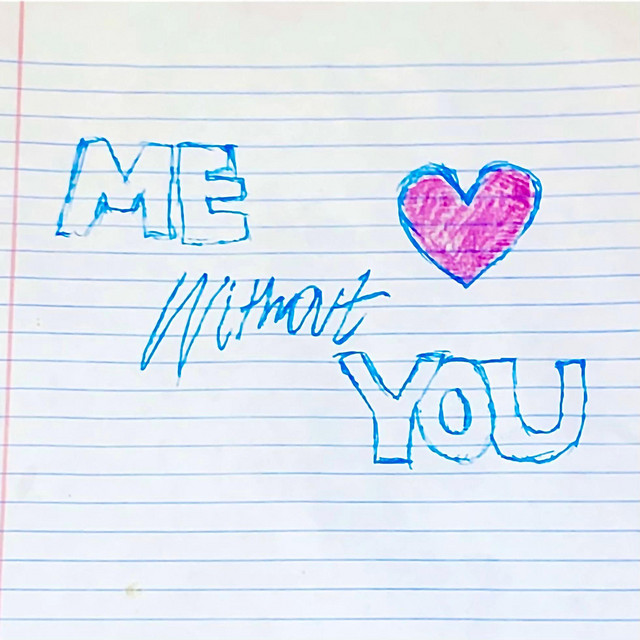 ME
Without
YOU